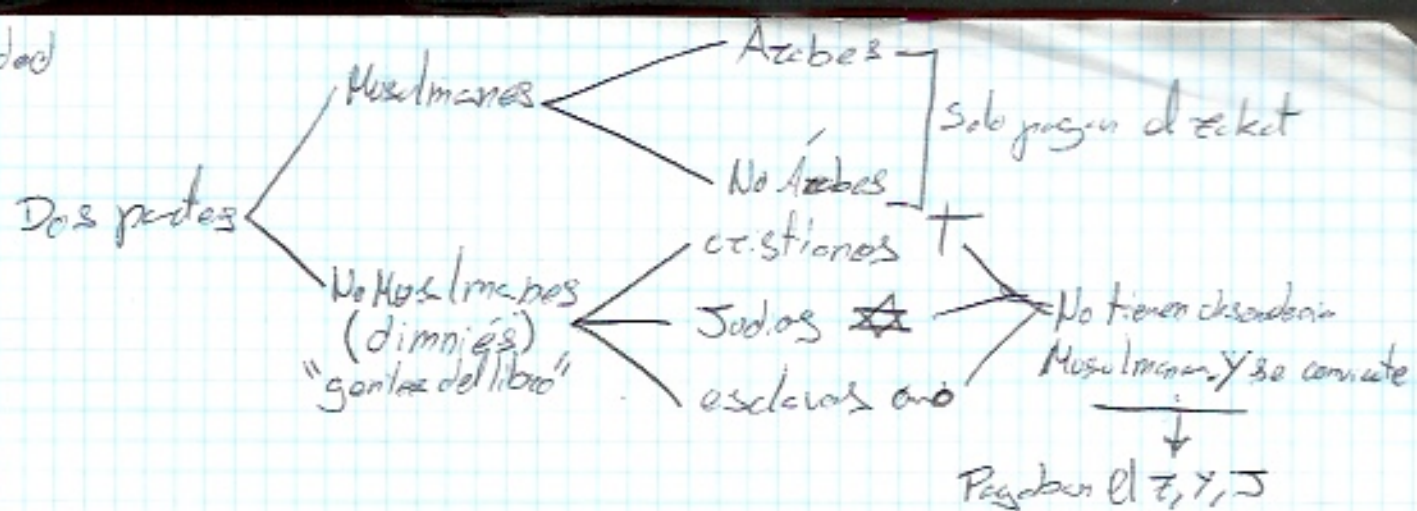 dad
Dos partes
Musulmanes
Arabes
No Árabes
Solo pagan el zakat
No Musulmanes
(dimniés)
"gentes del libro"
cristianos
Judios
esclavos
No tienen
Musulmana. Y se convierte
Pagaban el z, y, J